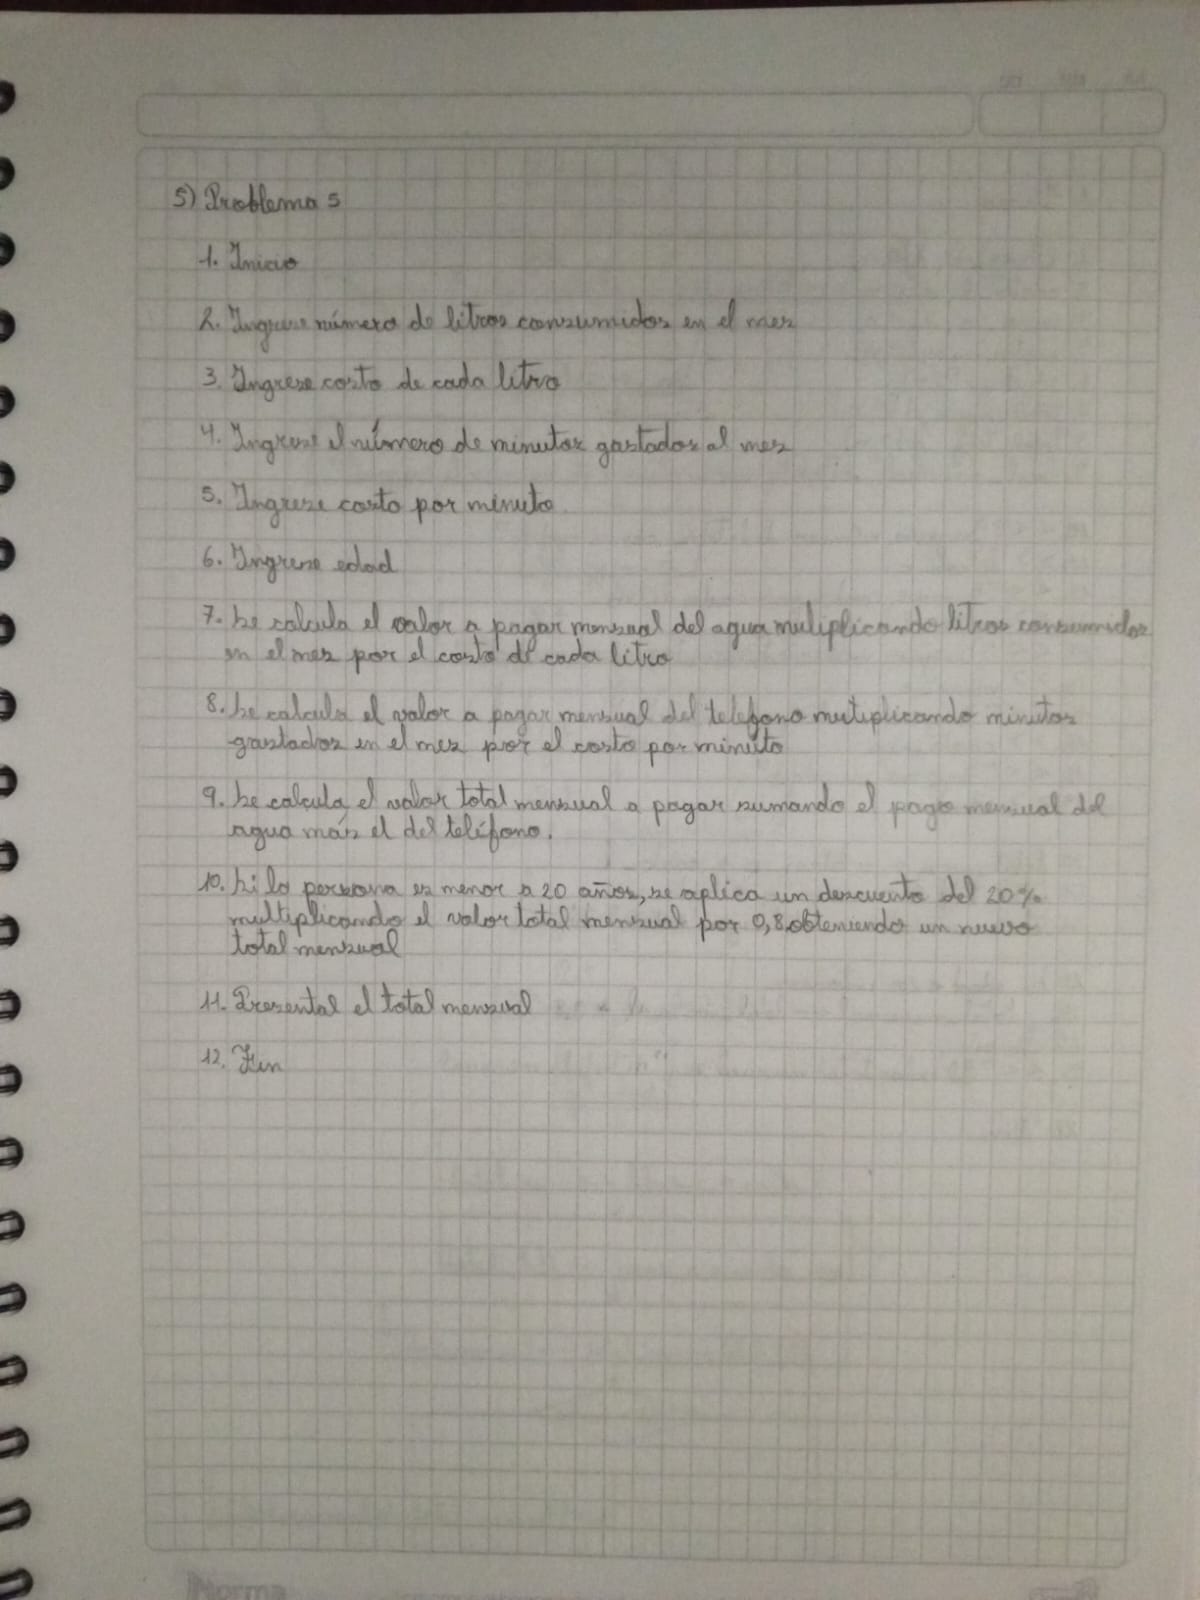 5) Problema 5
1. Inicio
2. Ingrese número de litros consumidos en el mes
3. Ingrese costo de cada litro
4. Ingrese el número de minutos gastados al mes
5. Ingrese costo por minuto
6. Ingrese edad
7. Se calcula el valor a pagar mensual del agua muliplicando litros consumidos
en el mes por el costo de cada litro
8. Se calcula el valor a pagar mensual del telefono mutiplicando minutos
gastados en el mes por el costo por minuto
9. Se calcula el valor total mensual a pagar sumando el pago mensual del
agua más el del teléfono.
10. Si la persona es menor a 20 años, se aplica un descuento del 20%
multiplicando el valor total mensual por 0,8 obteniendo un nuevo
total mensual
11. Presental el total mensual
12. Fin
Norma